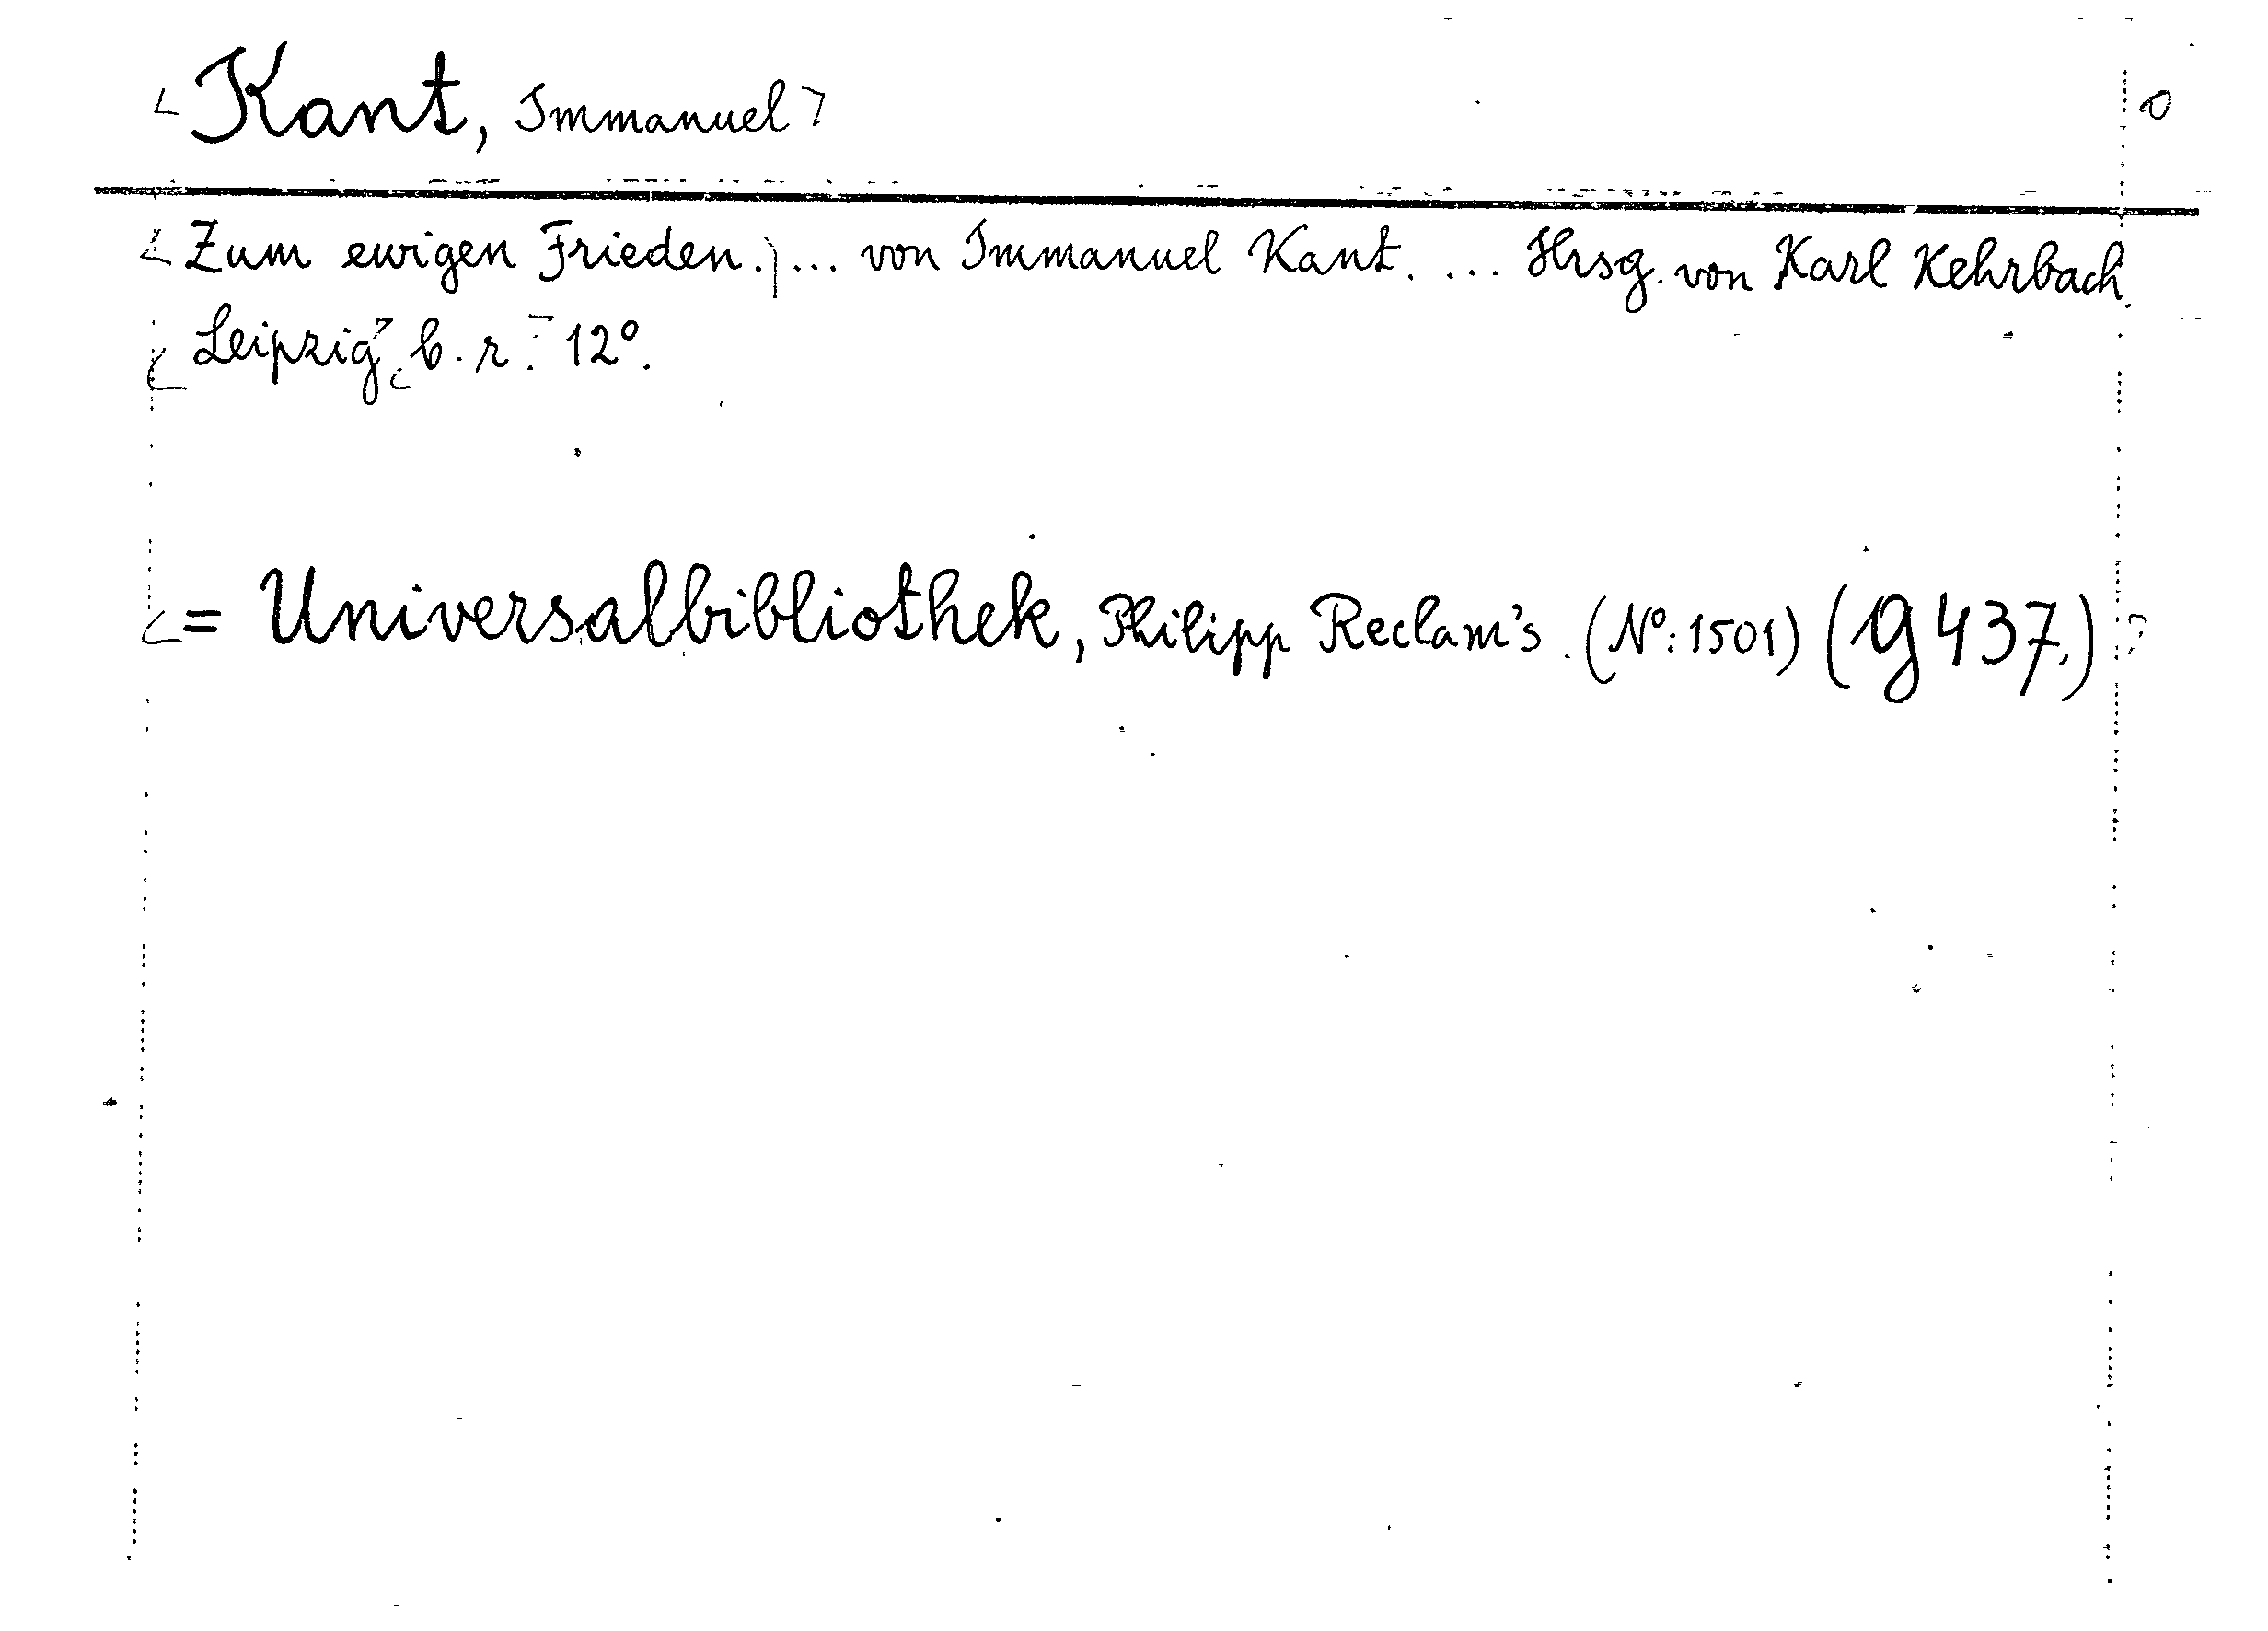 Kant, Immanuel
Zum ewigen Frieden. ... von Immanuel Kant. ... Hrsg. von Karl Kehrbach.
Leipzig, b. r. 12°.
= Universalbibliothek, Philipp Reclam's. (N°: 1501) (g 437.)